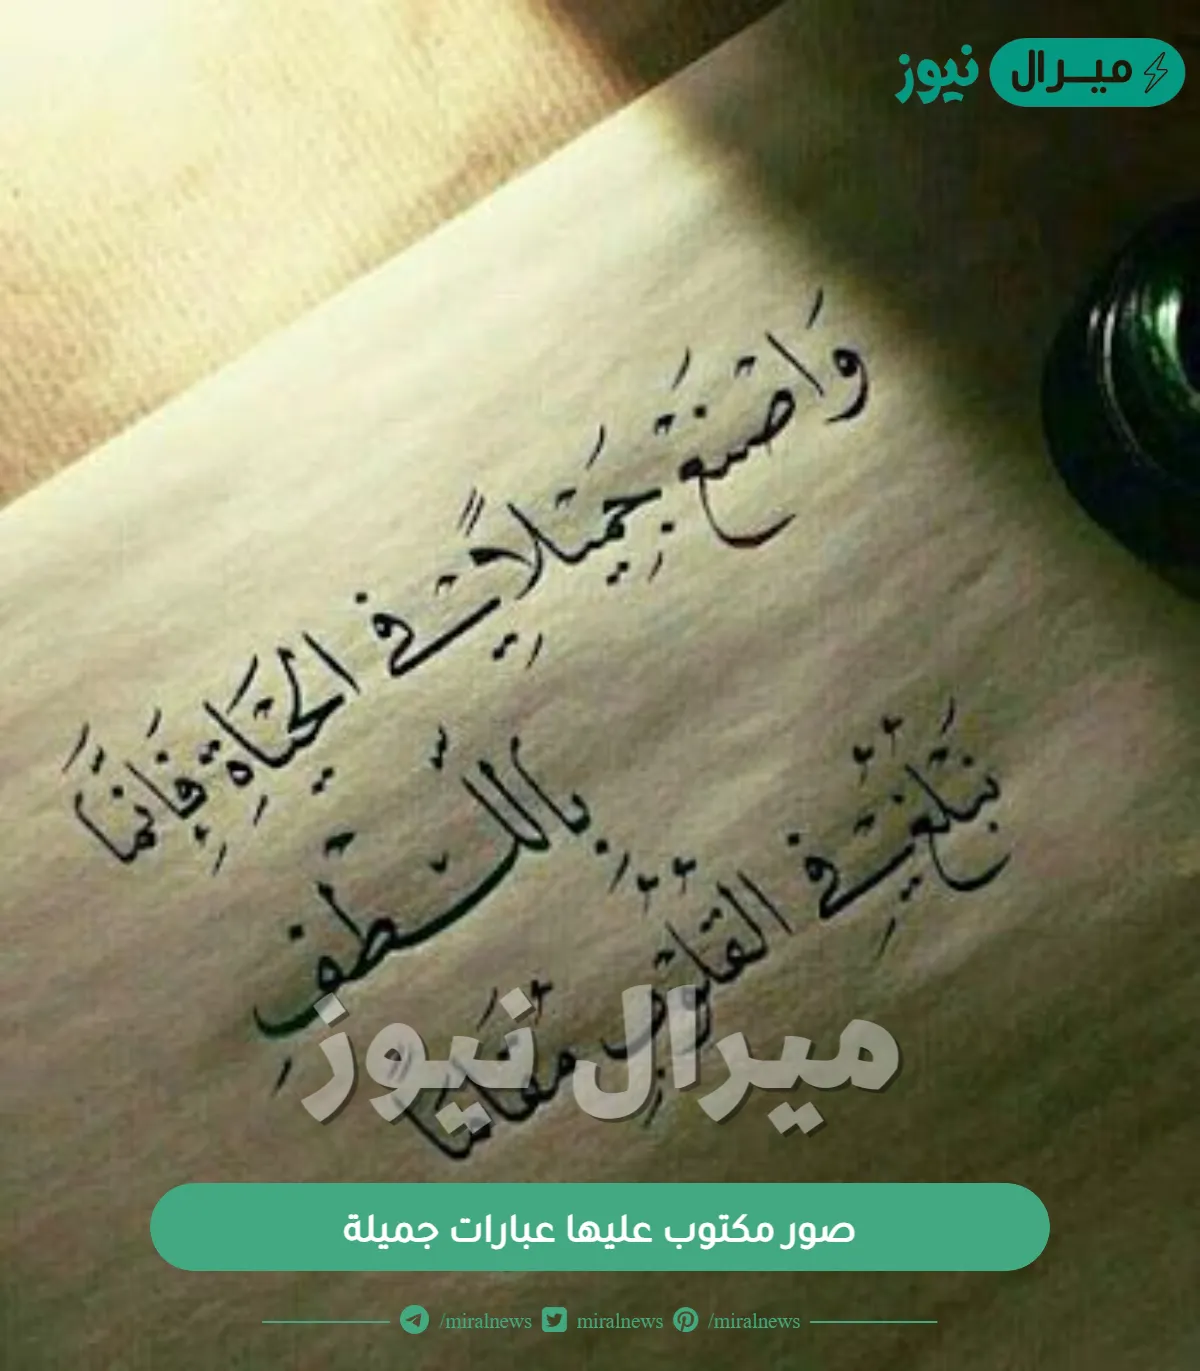 ميرال نيوز
وَاصْنَعْ جَمِيْلًا فِي الْحَيَاةِ فَإِنَّمَا
بِاللُّطْفِ
نَبْلُغُ فِي الْقُلُوْبِ مَقَامًا
ميرال نيوز
صور مكتوب عليها عبارات جميلة
/miralnews miralnews /miralnews